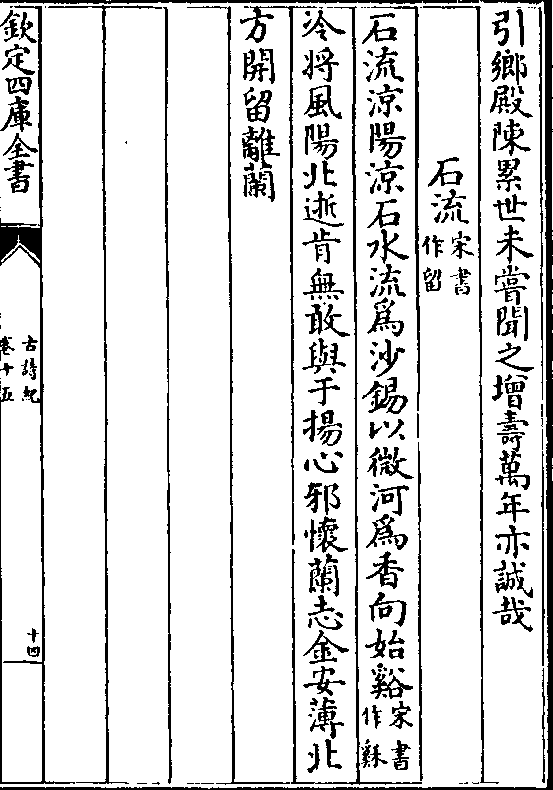 引鄉殿陳累世未嘗聞之增壽萬年亦誠哉
石流宋書作留
石流涼陽涼石水流為沙錫以微河為香向始谿宋書作䜭
冷将風陽北逝肯無敢與于揚心邪懷蘭志金安薄北
方開留離蘭
欽定四庫全書
古詩紀
卷十五
十四